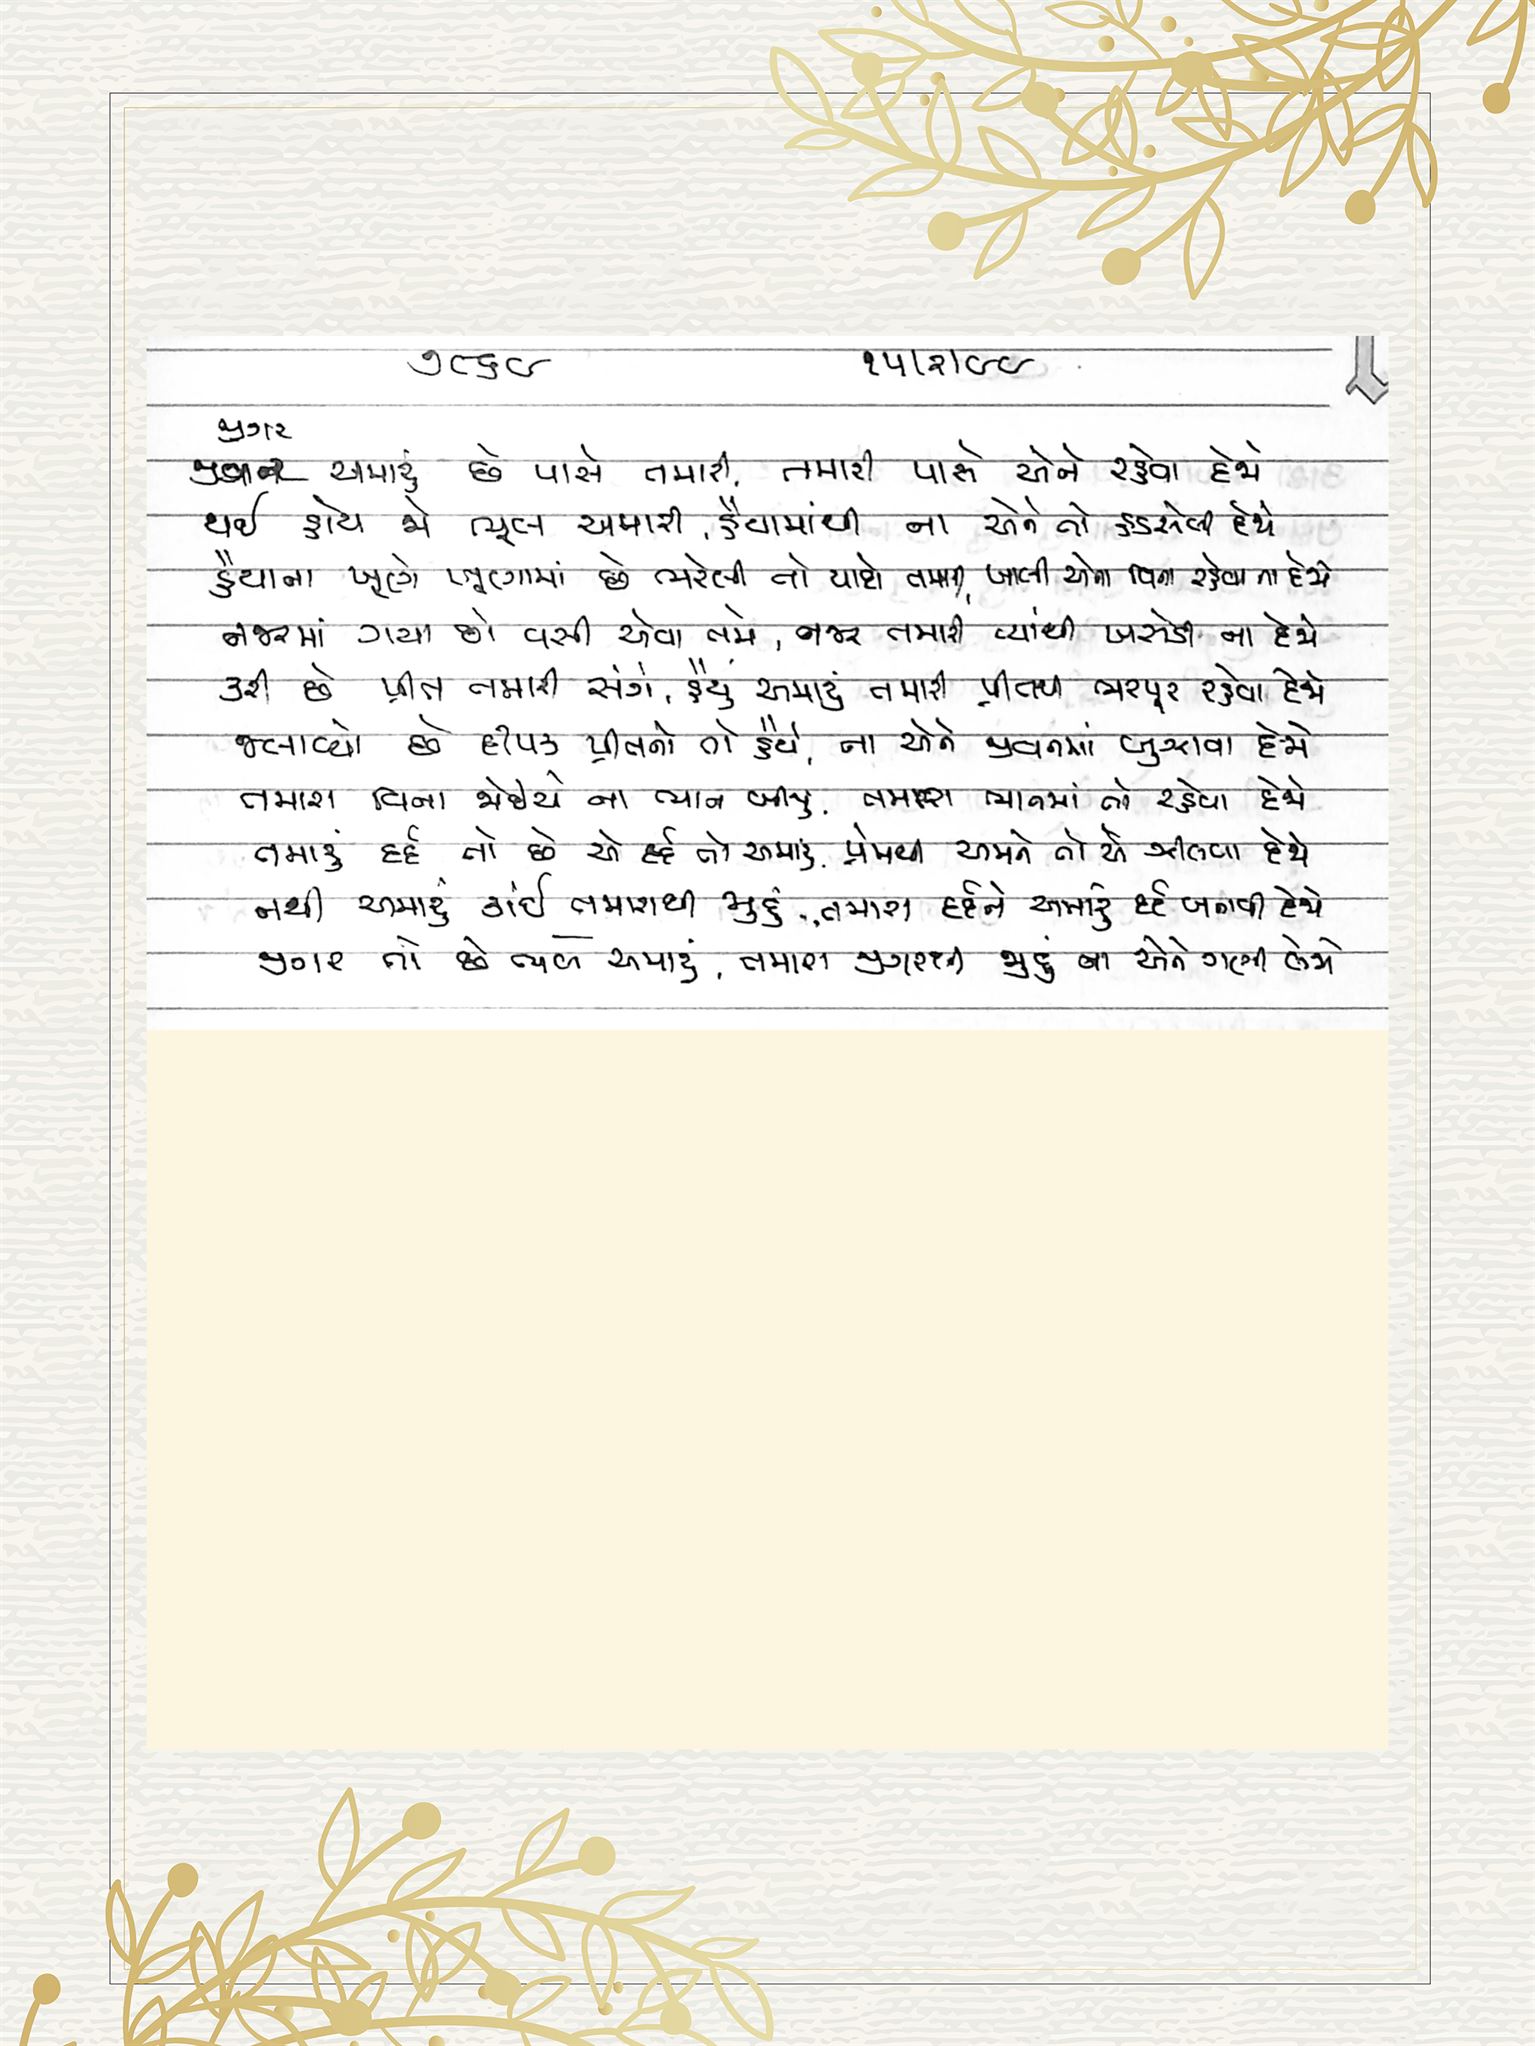 ૭૮૬૯ ૧૫/૨/૯૯
જીગર
અમારું છે પાસે તમારી, તમારી પાસે એને રહેવા દેજે
થઈ હોય જો ભૂલ અમારી, હૈયામાંથી ના એને તો હડસેલી દેજો
હૈયાના ખૂણે ખૂણામાં છે ભરેલી તો યાદો તમારી, ખાલી એના વિના રહેવા ના દેજો
નજરમાં ગયા છો વસી એવા તમે, નજર તમારી ત્યાંથી ખસેડી ના દેજો
કરી છે પ્રીત તમારી સંગે, હૈયું અમારું તમારી પ્રીતથી ભરપૂર રહેવા દેજો
જલાવ્યો છે દીપક પ્રીતનો તો હૈયે, ના એને જીવનમાં બુઝાવા દેજો
તમારા વિના જોઈયે ના ભાન બીજું, તમારા ભાનમાં તો રહેવા દેજો
તમારું દર્દ તો છે એ દર્દ તો અમારું, પ્રેમથી અમને તો એ ઝીલવા દેજો
નથી અમારું કાંઈ તમારાથી જુદું, તમારા દર્દને અમારું દર્દ બનાવી દેજો
જીગર તો છે ભલે અમારું, તમારા જીગરથી જુદું ના એને ગણી લેજો